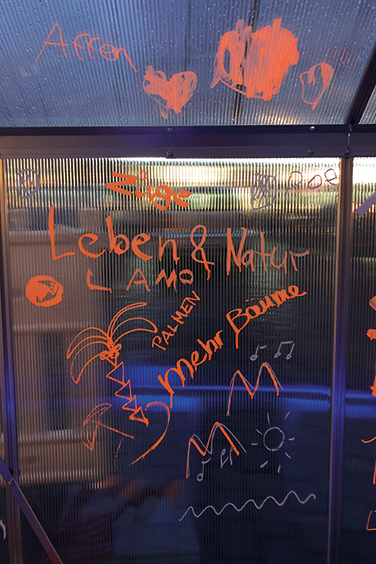 Affen
Leben & Natur
LAMO
PALMEN
mehr Bäume